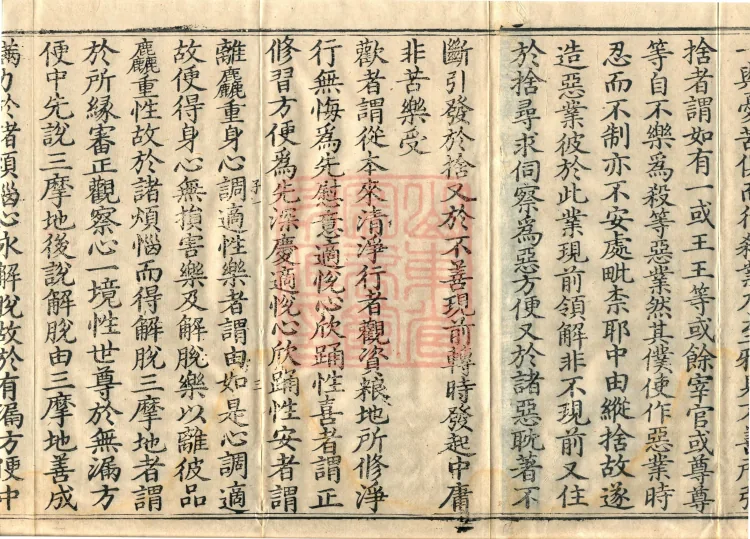 捨者謂如有一或王王等或餘宰官或尊尊
等自不樂為殺等惡業然其僕使作惡業時
忍而不制亦不安處毗柰耶中由縱捨故遂
造惡業彼於此業現前領解非不現前又住
於捨尋求伺察為惡方便又於諸惡耽著不
斷引發於捨又於不善現前轉時發起中庸
非苦樂受
歡者謂從本來清淨行者觀資糧地所修淨
行無悔為先慰意適悅心欣踊性喜者謂正
修習方便為先深慶適悅心欣踊性安者謂
離麤重身心調適性樂者謂由如是心調適
故便得身心無損害樂及解脫樂以離彼品
麤重性故於諸煩惱而得解脫三摩地者謂
於所緣審正觀察心一境性世尊於無漏方
便中先說三摩地後說解脫由三摩地善成
滿力於諸煩惱心永解脫故於有漏方便中